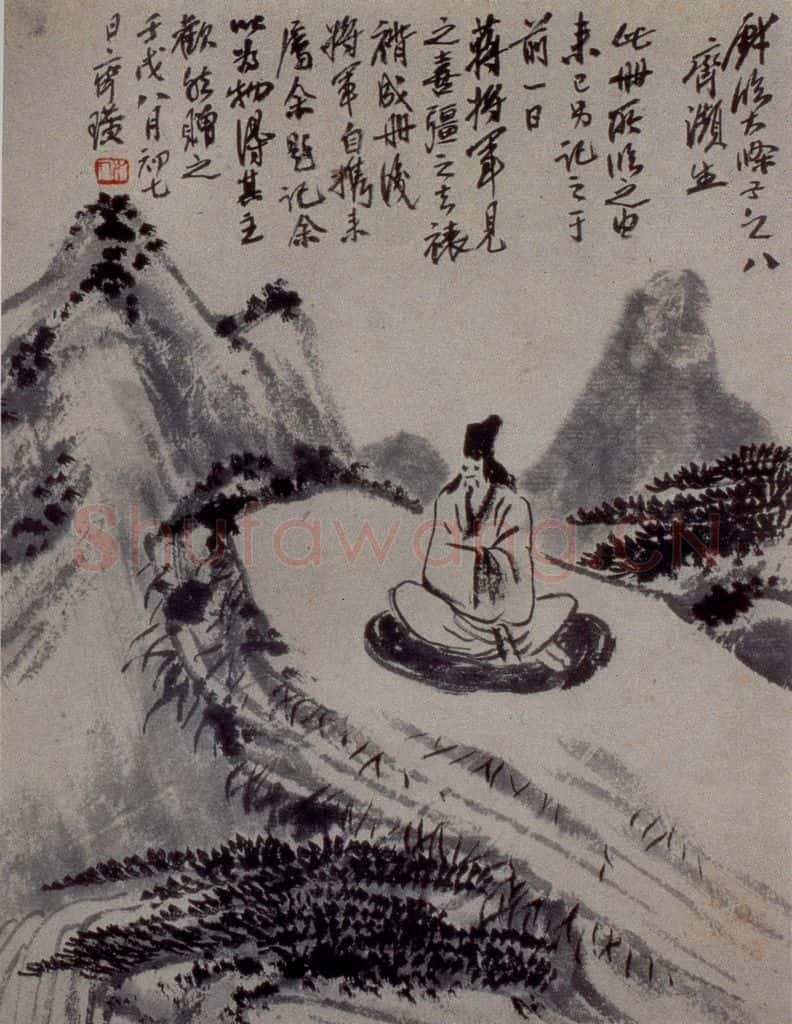 戲臨大滌子之八
齊瀕生
此冊所臨之由
來已另記之于
前一日
蔣將軍見
之喜彊之去裱
褙成冊後
將軍自攜來
屬余題記余
以為物得其主
歡然贈之
壬戌八月初七
日齊璜
Shufawang.CN